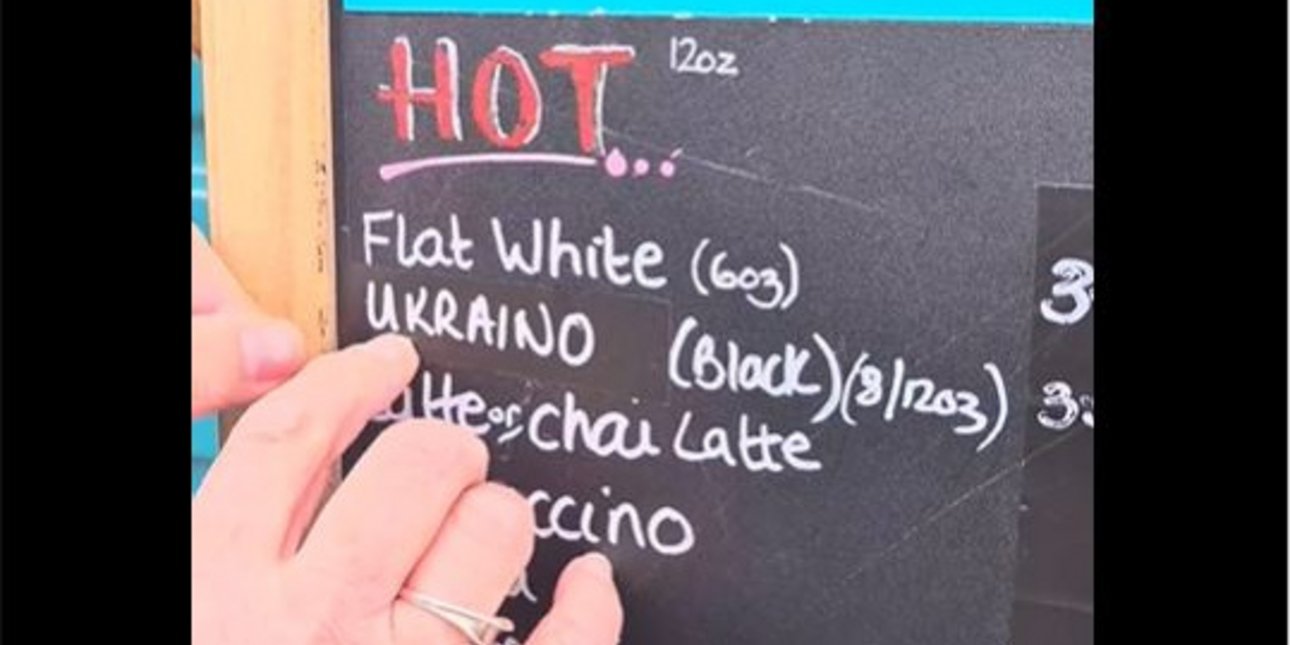 HOT... 12oz
Flat White (6oz) 3
UKRAINO (Black) (8/12oz) 3
or chai Latte